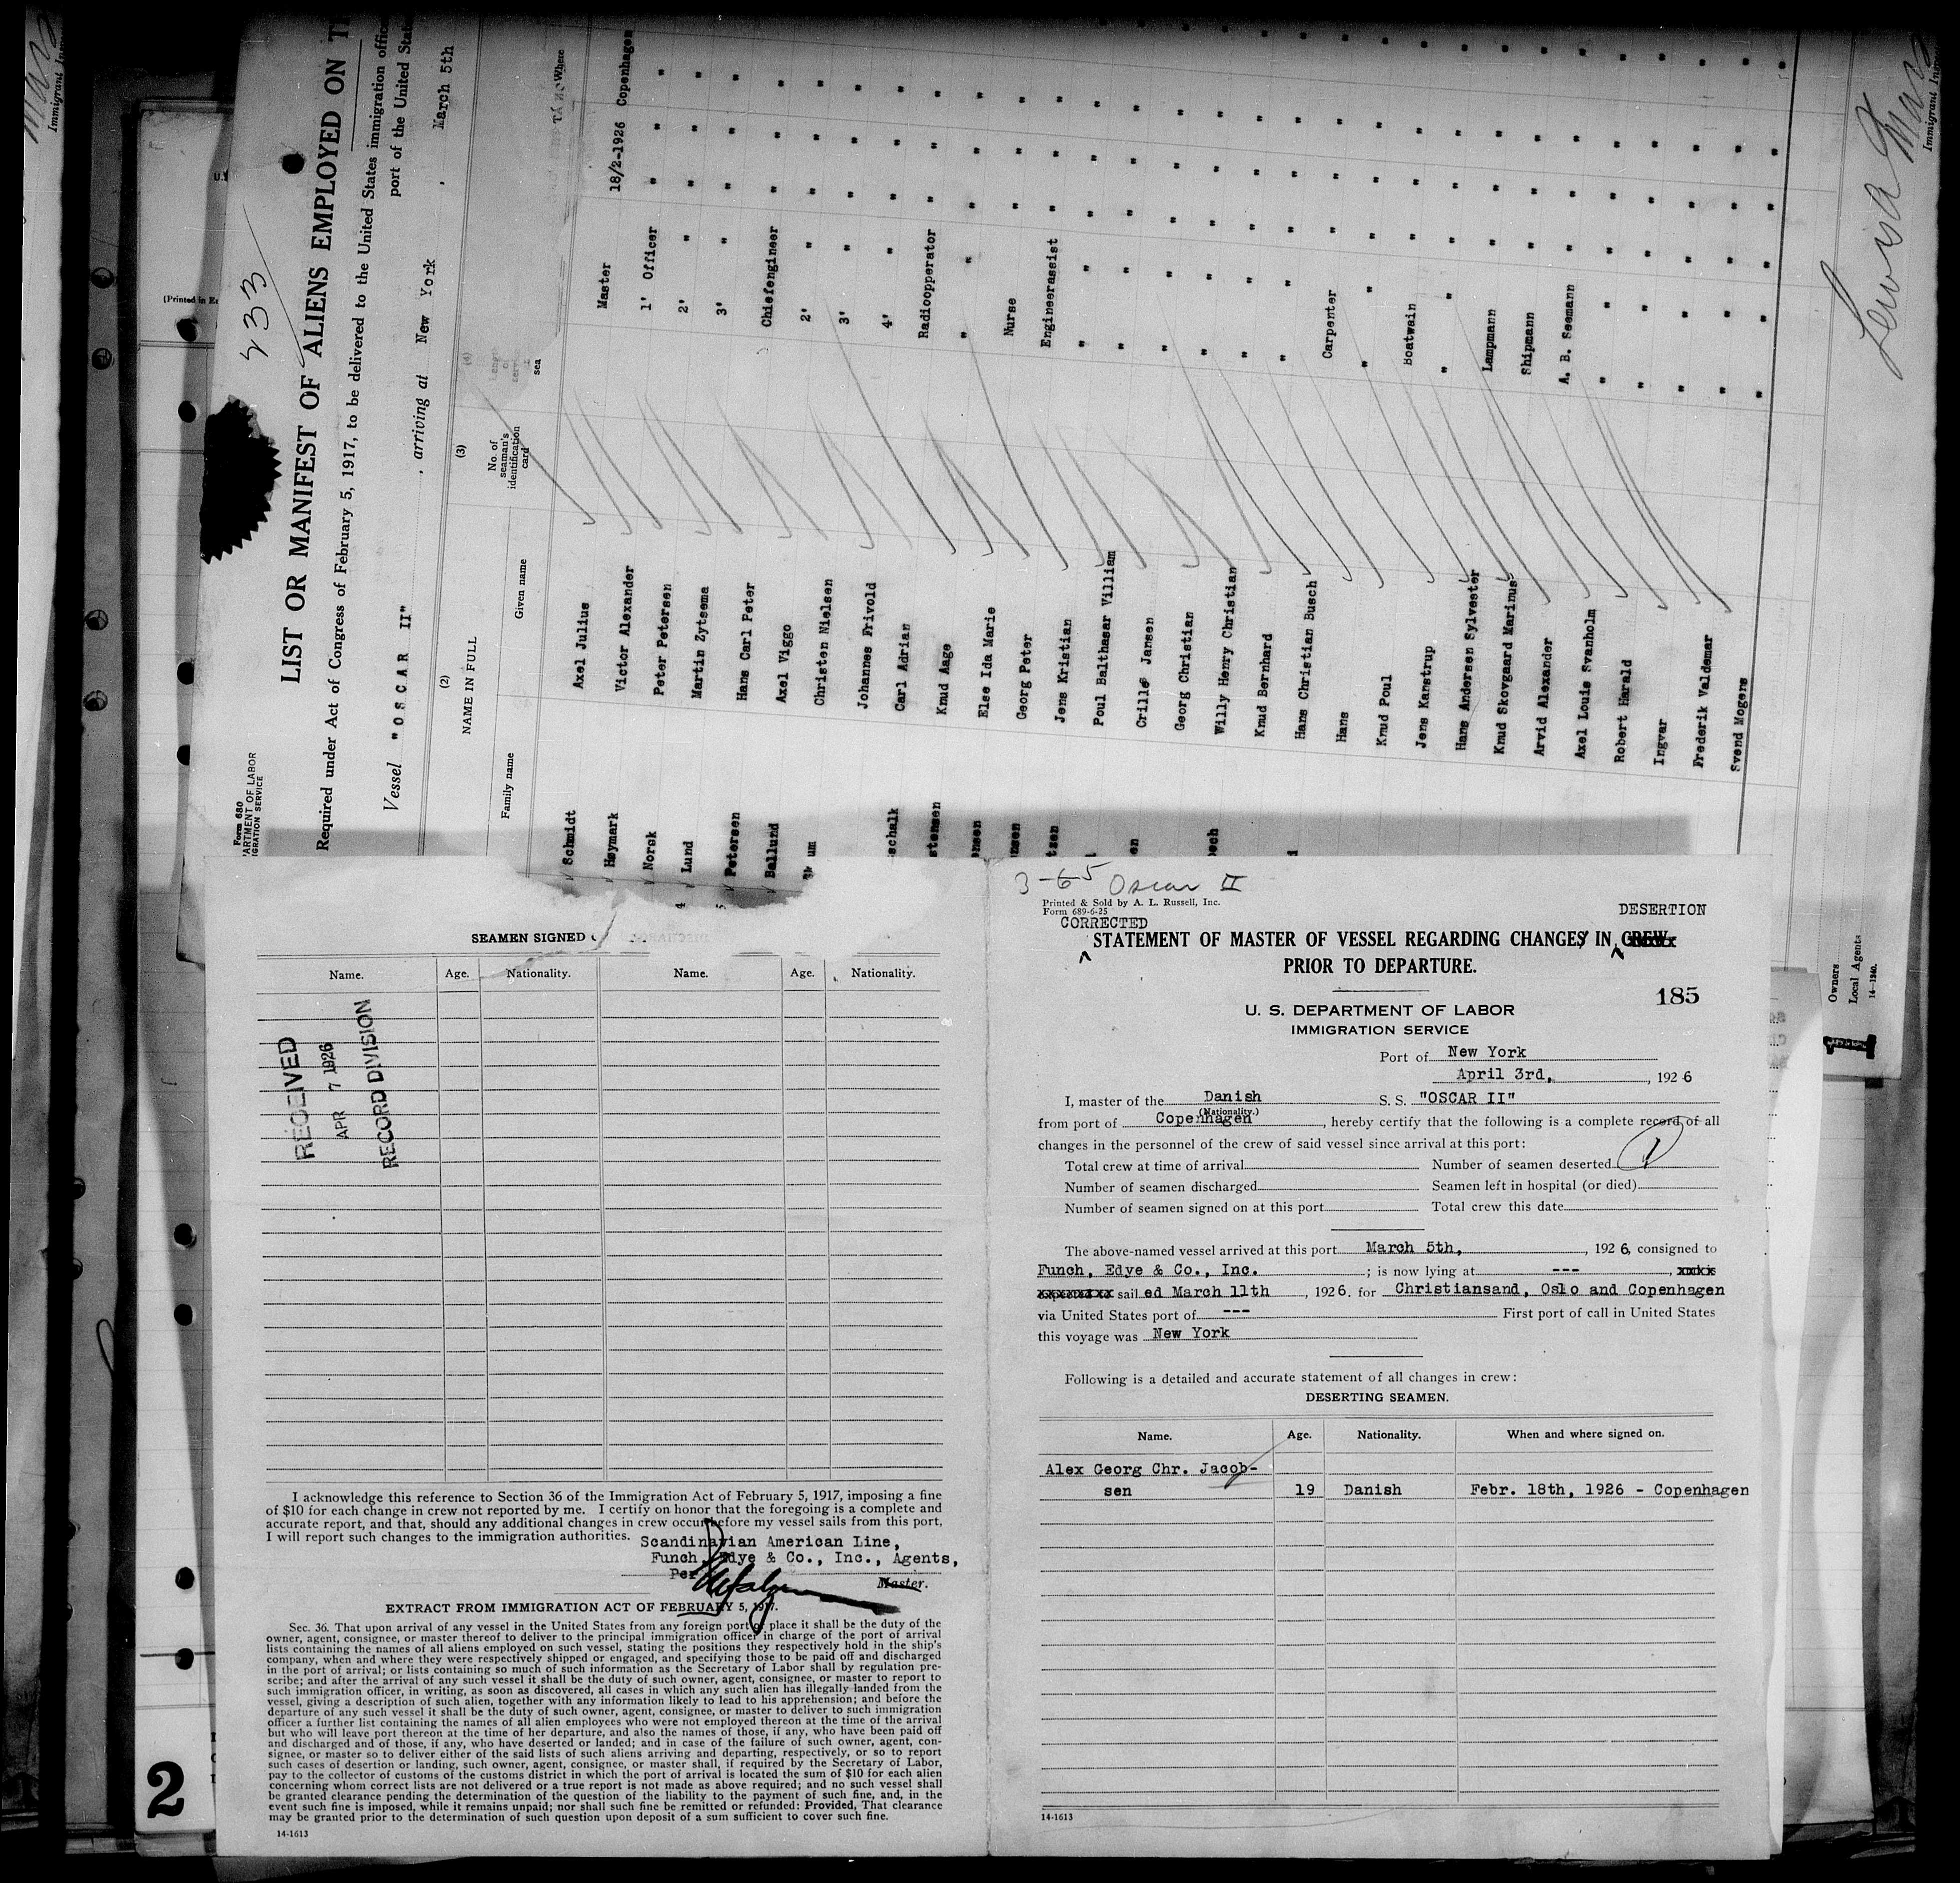 433
Form 680
LIST OR MANIFEST OF ALIENS EMPLOYED ON
Required under Act of Congress of February 5, 1917, to be delivered to the United States immigration
port of the United
Vessel "OSCAR II" , arriving at New York , March 5th
(2) (3) (4)
NAME IN FULL
Family name Given name No. of seaman's identification card
Schmidt Axel Julius Master 18/2-1926 Copenhagen
Høymark Victor Alexander 1' Officer " " "
Norsk Peter Petersen 2' " " " "
Lund Martin Zytsema 3' " " " "
Petersen Hans Carl Peter Chiefengineer " " "
Ballund Axel Viggo 2' " " " "
Christen Nielsen 3' " " " "
Johannes Frivold 4' " " " "
Carl Adrian Radiooperator " " "
Knud Aage " " " "
Else Ida Marie Nurse " " "
Georg Peter Engineerassist " " "
Jens Kristian " " " "
Poul Balthasar Villiam " " " "
Crille Jansen " " " "
Georg Christian " " " "
Willy Henry Christian " " " "
Knud Bernhard " " " "
Hans Christian Busch Carpenter " " "
Hans " " " "
Knud Poul Boatwain " " "
Jens Kanstrup " " " "
Hans Andersen Sylvester Lampmann " " "
Knud Skovgaard Marinus Shipmann " " "
Arvid Alexander A. B. Seemann " " "
Axel Louis Svanholm " " " "
Robert Harald " " " "
Ingvar " " " "
Frederik Valdemar " " " "
Svend Mogens " " " "
Owners
Local Agents
14-1240.
1
2
SEAMEN SIGNED
Name. Age. Nationality. Name. Age. Nationality.
RECEIVED
APR 7 1926
RECORD DIVISION
I acknowledge this reference to Section 36 of the Immigration Act of February 5, 1917, imposing a fine
of $10 for each change in crew not reported by me. I certify on honor that the foregoing is a complete and
accurate report, and that, should any additional changes in crew occur before my vessel sails from this port,
I will report such changes to the immigration authorities.
Scandinavian American Line,
Funch, Edye & Co., Inc., Agents,
Per Master.
EXTRACT FROM IMMIGRATION ACT OF FEBRUARY 5, 1917.
Sec. 36. That upon arrival of any vessel in the United States from any foreign port or place it shall be the duty of the
owner, agent, consignee, or master thereof to deliver to the principal immigration officer in charge of the port of arrival
lists containing the names of all aliens employed on such vessel, stating the positions they respectively hold in the ship's
company, when and where they were respectively shipped or engaged, and specifying those to be paid off and discharged
in the port of arrival; or lists containing so much of such information as the Secretary of Labor shall by regulation pre-
scribe; and after the arrival of any such vessel it shall be the duty of such owner, agent, consignee, or master to report to
such immigration officer, in writing, as soon as discovered, all cases in which any such alien has illegally landed from the
vessel, giving a description of such alien, together with any information likely to lead to his apprehension; and before the
departure of any such vessel it shall be the duty of such owner, agent, consignee, or master to deliver to such immigration
officer a further list containing the names of all alien employees who were not employed thereon at the time of the arrival
but who will leave port thereon at the time of her departure, and also the names of those, if any, who have been paid off
and discharged and of those, if any, who have deserted or landed; and in case of the failure of such owner, agent, con-
signee, or master so to deliver either of the said lists of such aliens arriving and departing, respectively, or so to report
such cases of desertion or landing, such owner, agent, consignee, or master shall, if required by the Secretary of Labor,
pay to the collector of customs of the customs district in which the port of arrival is located the sum of $10 for each alien
concerning whom correct lists are not delivered or a true report is not made as above required; and no such vessel shall
be granted clearance pending the determination of the question of the liability to the payment of such fine, and, in the
event such fine is imposed, while it remains unpaid; nor shall such fine be remitted or refunded: Provided, That clearance
may be granted prior to the determination of such question upon deposit of a sum sufficient to cover such fine.
14-1613
3-65 Oscar II
Printed & Sold by A. L. Russell, Inc.
Form 689-6-25
CORRECTED DESERTION
STATEMENT OF MASTER OF VESSEL REGARDING CHANGES IN CREW
PRIOR TO DEPARTURE.
185
U. S. DEPARTMENT OF LABOR
IMMIGRATION SERVICE
Port of New York
April 3rd, , 1926
I, master of the Danish S. S. "OSCAR II"
(Nationality.)
from port of Copenhagen , hereby certify that the following is a complete record of all
changes in the personnel of the crew of said vessel since arrival at this port:
Total crew at time of arrival Number of seamen deserted 1
Number of seamen discharged Seamen left in hospital (or died)
Number of seamen signed on at this port Total crew this date
The above-named vessel arrived at this port March 5th, , 1926, consigned to
Funch, Edye & Co., Inc. ; is now lying at --- , xxxx
expected to sailed March 11th , 1926. for Christiansand, Oslo and Copenhagen
via United States port of --- First port of call in United States
this voyage was New York
Following is a detailed and accurate statement of all changes in crew:
DESERTING SEAMEN.
Name. Age. Nationality. When and where signed on.
Alex Georg Chr. Jacob-
sen 19 Danish Febr. 18th, 1926 - Copenhagen
14-1613